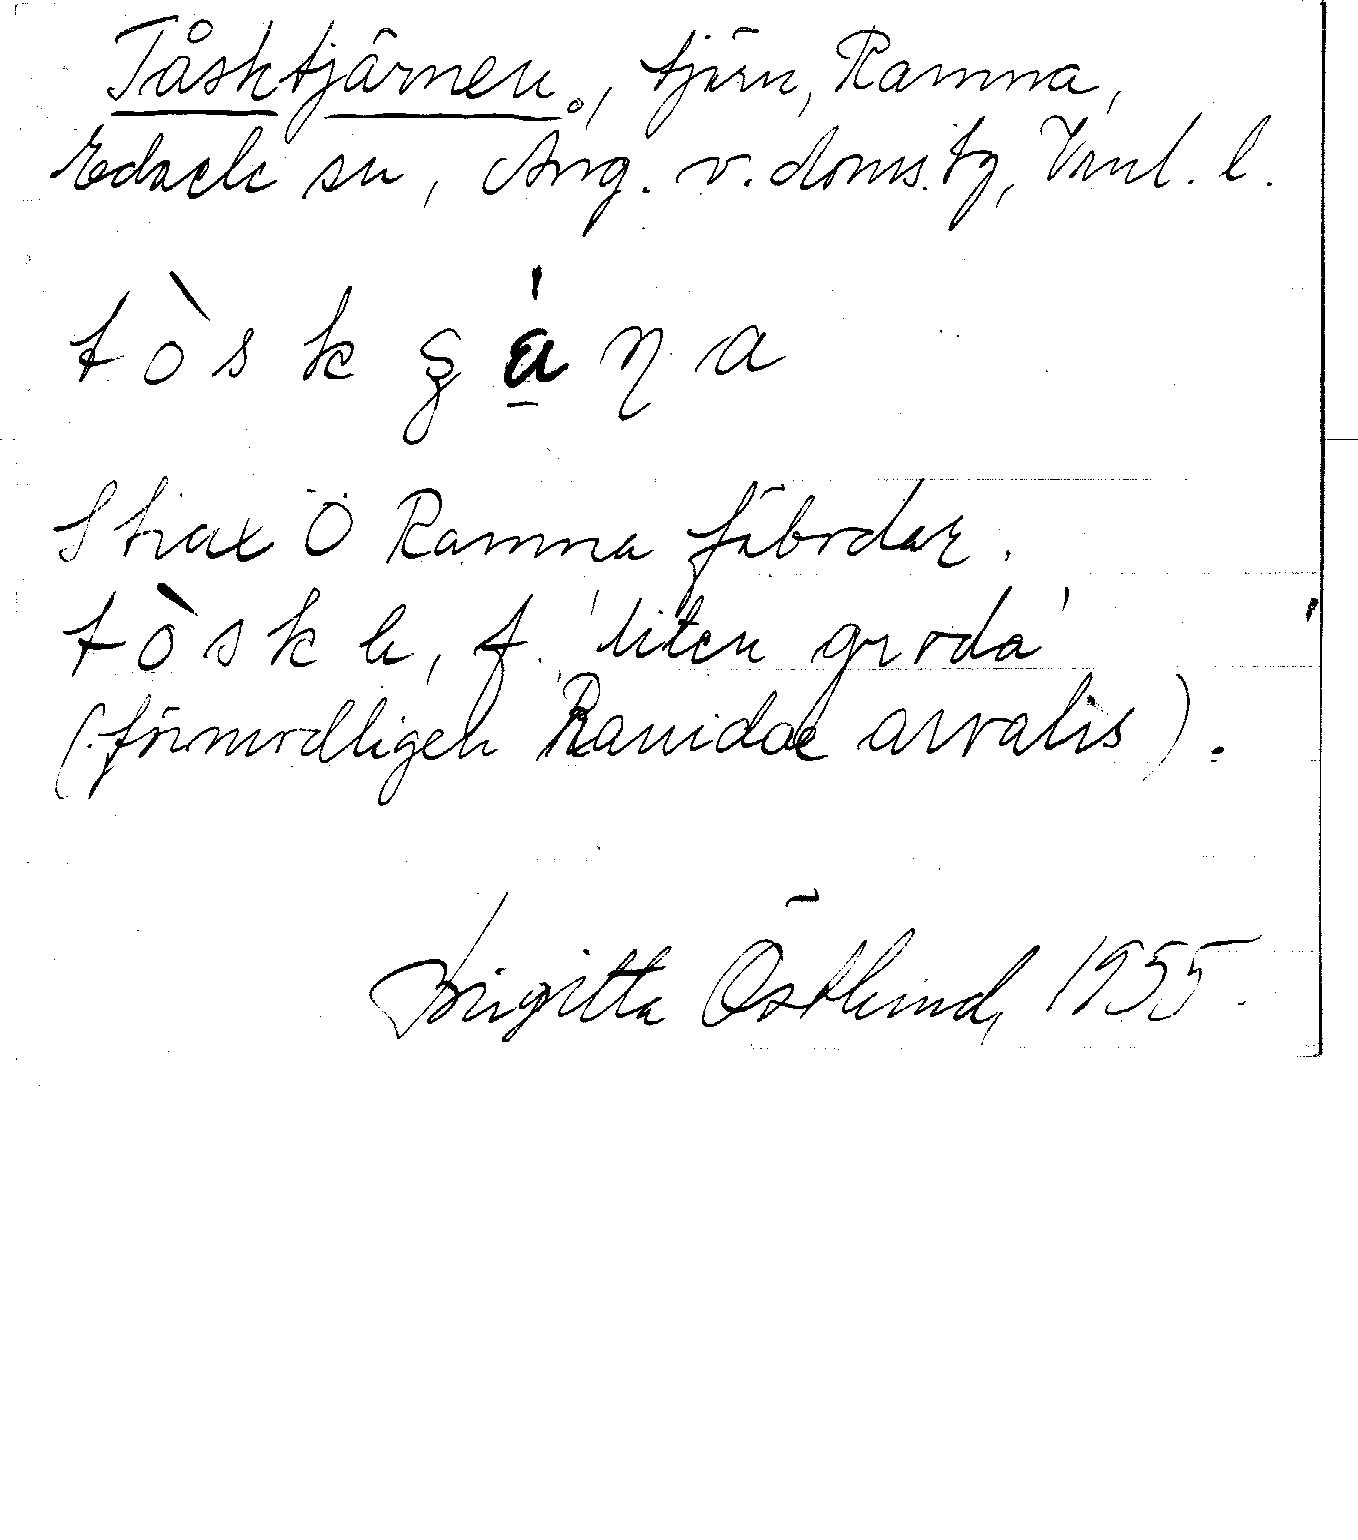 Tåsktjärnen, tjärn, Ramna,
Edsele sn, Ång. v. doms. tg, Vnl. l.
tòskʂána
Strax Ö Ramna fäbodar.
tòsk, f. 'liten groda'
(förmodligen Ranidae arvalis).
Birgitta Östlund, 1955.